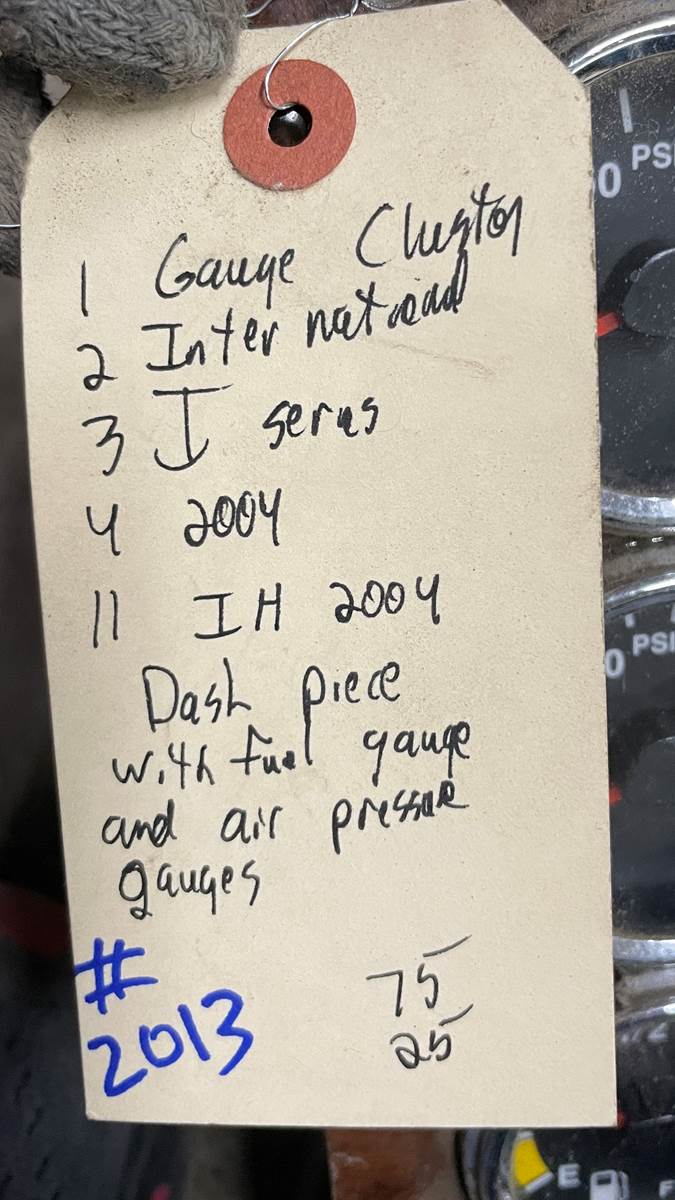 1 Gauge Cluster
2 International
3 I series
4 2004
11 IH 2004
Dash piece
with fuel gauge
and air pressure
gauges
#
2013
75
25
0 PSI
0 PSI
E
F